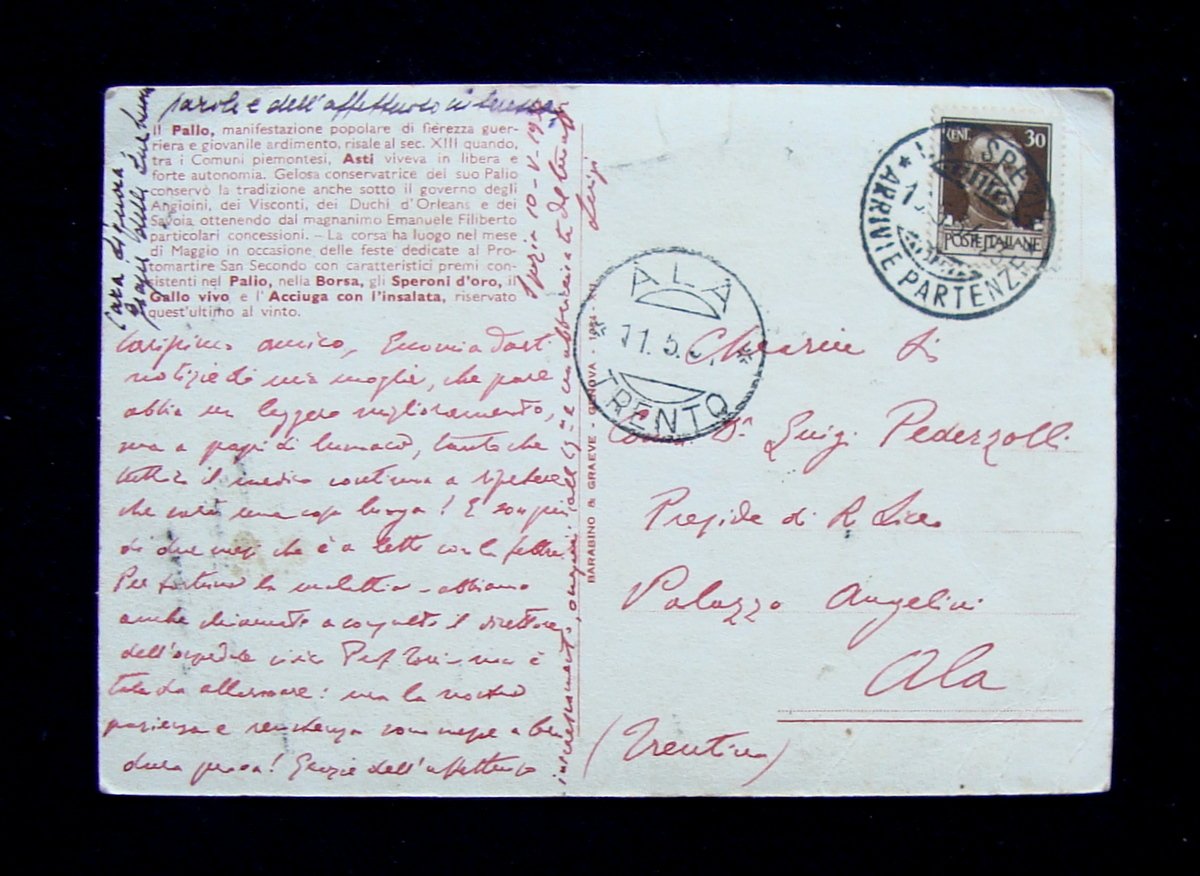 parole e dell'affettuoso
Il Palio, manifestazione popolare di fierezza guer-
riera e giovanile ardimento, risale al sec. XIII quando,
tra i Comuni piemontesi, Asti viveva in libera e
forte autonomia. Gelosa conservatrice del suo Palio
conservò la tradizione anche sotto il governo degli
Angioini, dei Visconti, dei Duchi d'Orleans e dei
Savoia ottenendo dal magnanimo Emanuele Filiberto
particolari concessioni. - La corsa ha luogo nel mese
di Maggio in occasione delle feste dedicate al Pro-
tomartire San Secondo con caratteristici premi con-
sistenti nel Palio, nella Borsa, gli Speroni d'oro, il
Gallo vivo e l'Acciuga con l'insalata, riservato
quest'ultimo al vinto.
Spezia 10-V-19
Luigi
Carissimo amico, Eccomi a darti
notizie di mia moglie, che pare
abbia un leggero miglioramento,
ma a passi di lumaca, tanto che
il medico continua a ripetere
che sarà una cosa lunga! E son più
di due mesi che è a letto con la febbre.
Per fortuna la malattia - abbiamo
anche chiamato a consulto il direttore
dell'ospedale civico Prof. - non è
tale da allarmare: ma la nostra
pazienza e resistenza sono messe a ben
dura prova! Grazie dell'affettuoso
interessamento, auguri
BARABINO & GRAEVE - GENOVA - 1934 - XII
CENT. 30
POSTE ITALIANE
SPE
ARRIVI E PARTENZE
ALA
11.5.
TRENTO
Chiar.
Luigi Pederzolli
Preside di R. Liceo
Palazzo Angelini
Ala
(Trentino)